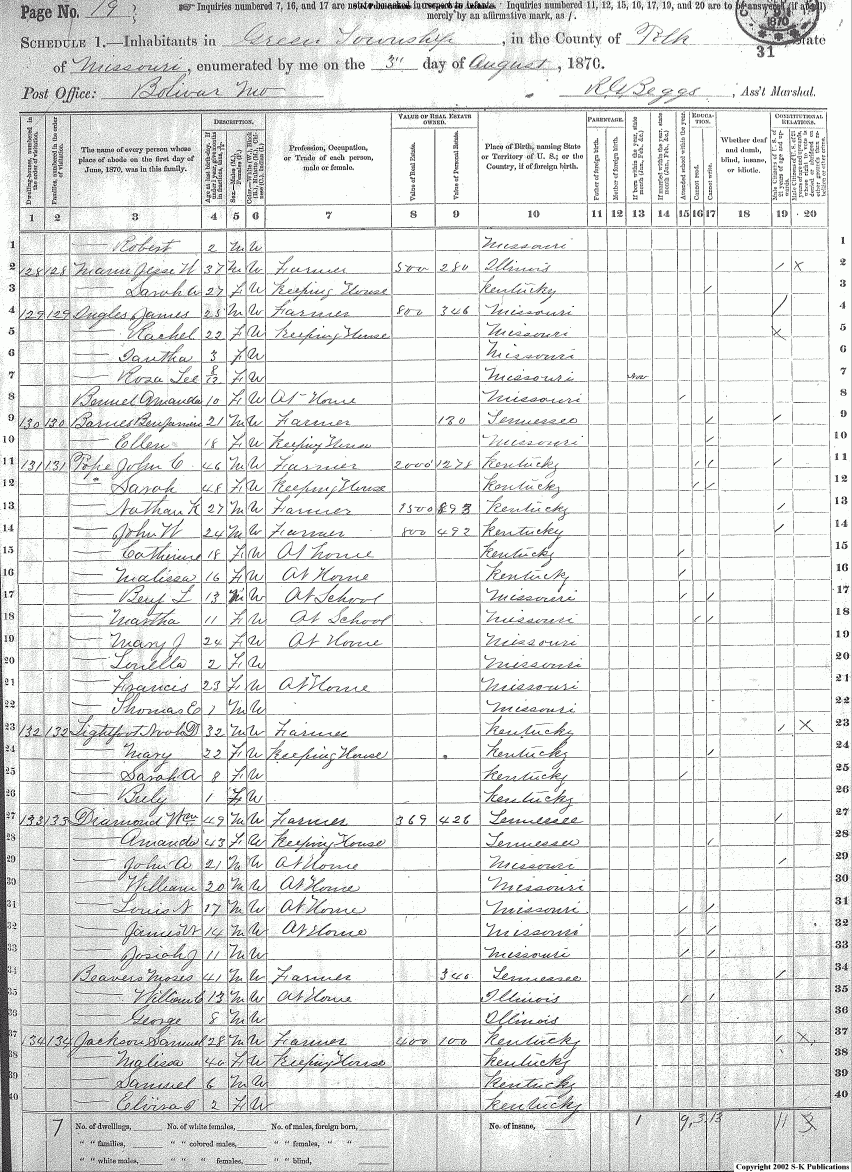 Page No. 19
Inquiries numbered 7, 16, and 17 are not to be asked in respect to infants. Inquiries numbered 11, 12, 15, 16, 17, 19, and 20 are to be answered (if at all)
merely by an affirmative mark, as /.
SCHEDULE 1.—Inhabitants in Green Township, in the County of Polk, State
of Missouri, enumerated by me on the 3" day of August, 1870.
31
Post Office: Bolivar Mo R. Beggs, Ass't Marshal.
Dwelling-houses, numbered in the order of visitation.
Families, numbered in the order of visitation.
The name of every person whose place of abode on the first day of June, 1870, was in this family.
DESCRIPTION.
Profession, Occupation, or Trade of each person, male or female.
VALUE OF REAL ESTATE OWNED.
Value of Real Estate.
Value of Personal Estate.
Place of Birth, naming State or Territory of U. S.; or the Country, if of foreign birth.
PARENTAGE.
Father of foreign birth.
Mother of foreign birth.
EDUCATION.
Attended school within the year.
Cannot read.
Cannot write.
Whether deaf and dumb, blind, insane, or idiotic.
CONSTITUTIONAL RELATIONS.
1 2 3 4 5 6 7 8 9 10 11 12 13 14 15 16 17 18 19 20
1 — Robert 2 M W Missouri 1
2 128 128 Mann Jesse W 37 M W Farmer 500 280 Illinois / X 2
3 — Sarah A 27 F W Keeping House Kentucky / 3
4 129 129 Ingles James 25 M W Farmer 800 346 Missouri / 4
5 — Rachel 22 F W Keeping House Missouri X 5
6 — Iantha 3 F W Missouri 6
7 — Rosa Lee 8/12 F W Missouri Nov 7
8 Amanda 10 F W At Home Missouri / 8
9 130 130 Barnes Benjamin 21 M W Farmer 180 Tennessee / / 9
10 — Ellen 18 F W Keeping House Missouri / 10
11 131 131 Pope John C 46 M W Farmer 2000 1278 Kentucky / / / 11
12 " Sarah 48 F W Keeping House Kentucky / / 12
13 — Nathan K 27 M W Farmer 1500 893 Kentucky / 13
14 — John W 24 M W Farmer 800 492 Kentucky / 14
15 — Catherine 18 F W At home Kentucky / 15
16 — Malissa 16 F W At Home Kentucky / / 16
17 — Benj L 13 M W At School Missouri / / 17
18 — Martha 11 F W At School Missouri / / 18
19 — Mary J 24 F W At Home Missouri 19
20 — Louella 2 F W Missouri 20
21 — Francis 23 F W At Home Missouri 21
22 — Thomas E 1 M W Missouri 22
23 132 132 Lightfoot Noah D 32 M W Farmer Kentucky / X 23
24 — Mary 22 F W Keeping House Kentucky / 24
25 — Sarah A 8 F W Kentucky / 25
26 — 1 F W Kentucky 26
27 133 133 Diamond Wm 49 M W Farmer 369 426 Tennessee / 27
28 Amanda 43 F W Keeping House Tennessee / 28
29 — John A 21 M W At Home Missouri / 29
30 — William 20 M W At Home Missouri 30
31 — Louis N 17 M W At Home Missouri / / 31
32 — James W 14 M W At Home Missouri / / 32
33 — Josiah J 11 M W Missouri / / 33
34 Beavers Moses 41 M W Farmer 340 Tennessee / 34
35 — William C 13 M W At Home Illinois / / 35
36 — George 8 M W Illinois 36
37 134 134 Jackson Samuel 28 M W Farmer 400 100 Kentucky / X 37
38 — Malissa 40 F W Keeping House Kentucky 38
39 — Samuel 6 M W Kentucky 39
40 — 2 F W Kentucky 40
7 No. of dwellings, No. of white females, No. of males, foreign born, No. of insane, 1 9, 3, 13 11 3
" " families, " " colored males, " " females, " "
" " white males, " " " females, " " blind,
Copyright 2002 S-K Publications